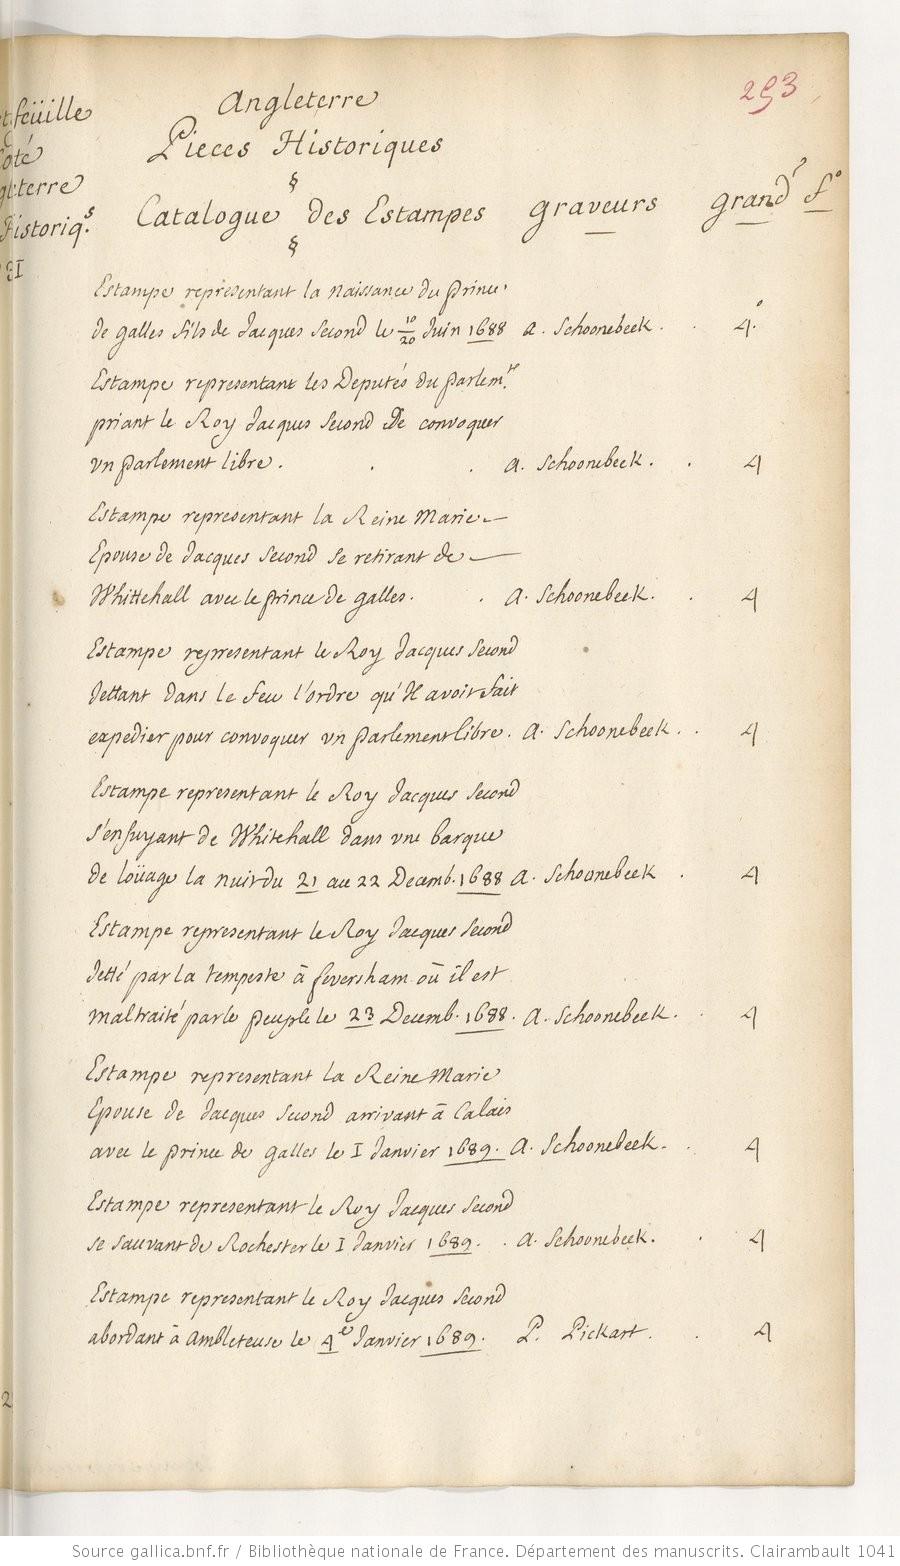 293
Angleterre
Pieces Historiques
§
Catalogue des Estampes graveurs grandr fo
§
feüille
oté
terre
Historiqs.
31
Estampe representant la naissance du Prince
de galles fils de Jacques Second le 10/20 Juin 1688 A. Schoonebeek . . 4.o
Estampe representant les Deputés du parlemt.
priant le Roy Jacques Second De convoquer
vn parlement libre . . . A. Schoonebeek . . 4
Estampe representant la Reine Marie
Epouse de Jacques Second se retirant de
Whittehall avec le prince de galles . . A. Schoonebeek . . 4
Estampe representant le Roy Jacques Second
Jettant dans le feu l'ordre qu'Il avoit fait
expedier pour convoquer vn parlement libre . A. Schoonebeek . . 4
Estampe representant le Roy Jacques Second
s'enfuyant de Whitehall dans vne barque
de loüage la nuit du 21 au 22 Decemb. 1688 A. Schoonebeek . 4
Estampe representant le Roy Jacques Second
Jetté par la tempeste à feversham où il est
maltraité par le peuple le 23 Decemb. 1688 . A. Schoonebeek . . 4
Estampe representant la Reine Marie
Epouse de Jacques Second arrivant à Calais
avec le prince de galles le I Janvier 1689. A. Schoonebeek . . 4
Estampe representant le Roy Jacques Second
se sauvant de Rochester le I Janvier 1689 . . A. Schoonebeek . . 4
Estampe representant le Roy Jacques Second
abordant à Ambleteuse le 4e Janvier 1689 . P. Pickart . . 4
2
Source gallica.bnf.fr / Bibliothèque nationale de France. Département des manuscrits. Clairambault 1041